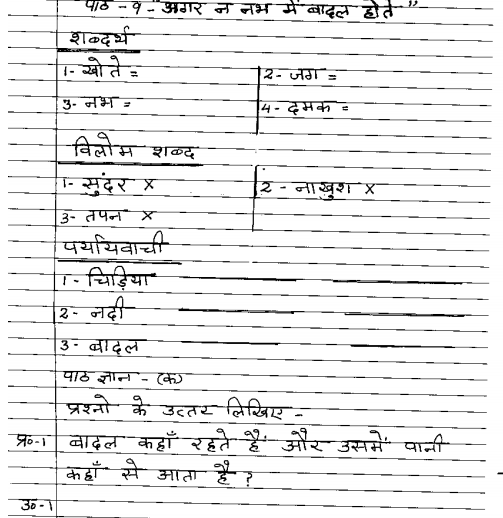 पाठ - 9 - "अगर न नभ में बादल होते"
शब्दर्थ
1- खोते = 2- जग =
3- नभ = 4- दमक =
विलोम शब्द
1- सुंदर × 2 - नाखुश ×
3- तपन ×
पर्यायवाची
1 - चिड़िया
2 - नदी
3 - बादल
पाठ ज्ञान - (क)
प्रश्नो के उत्तर लिखिए -
प्र०-1 बादल कहाँ रहते हैं और उसमें पानी
कहाँ से आता है ?
उ०-1